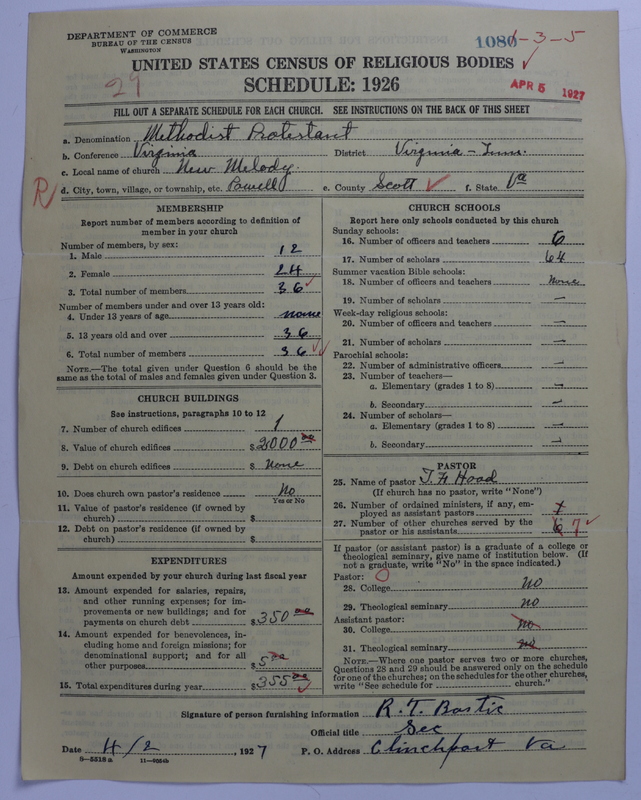 DEPARTMENT OF COMMERCE
BUREAU OF THE CENSUS
WASHINGTON
1080 1-3-5
UNITED STATES CENSUS OF RELIGIOUS BODIES
29
SCHEDULE: 1926
APR 5 1927
FILL OUT A SEPARATE SCHEDULE FOR EACH CHURCH. SEE INSTRUCTIONS ON THE BACK OF THIS SHEET
a. Denomination Methodist Protestant
b. Conference Virginia District Virginia - Tenn.
c. Local name of church New Melody.
R d. City, town, village, or township, etc. Powell e. County Scott f. State Va
MEMBERSHIP
Report number of members according to definition of member in your church
Number of members, by sex:
1. Male 12
2. Female 24
3. Total number of members 36
Number of members under and over 13 years old:
4. Under 13 years of age none
5. 13 years old and over 36
6. Total number of members 36
NOTE.—The total given under Question 6 should be
same as the total of males and females given under Question 3.
CHURCH BUILDINGS
See instructions, paragraphs 10 to 12
7. Number of church edifices 1
8. Value of church edifices $2000 00
9. Debt on church edifices $ None
10. Does church own pastor's residence No
Yes or No
11. Value of pastor's residence (if owned by
church) $
12. Debt on pastor's residence (if owned by
church) $
EXPENDITURES
Amount expended by your church during last fiscal year
13. Amount expended for salaries, repairs,
and other running expenses; for im-
provements or new buildings; and for
payments on church debt $350 00
14. Amount expended for benevolences, in-
cluding home and foreign missions; for
denominational support; and for all
other purposes $5 00
15. Total expenditures during year $355 00
CHURCH SCHOOLS
Report here only schools conducted by this church
Sunday schools:
16. Number of officers and teachers 6
17. Number of scholars 64
Summer vacation Bible schools:
18. Number of officers and teachers None
19. Number of scholars —
Week-day religious schools:
20. Number of officers and teachers —
21. Number of scholars —
Parochial schools:
22. Number of administrative officers —
23. Number of teachers—
a. Elementary (grades 1 to 8) —
b. Secondary —
24. Number of scholars—
a. Elementary (grades 1 to 8) —
b. Secondary —
PASTOR
25. Name of pastor J. H Hood
(If church has no pastor, write "None")
26. Number of ordained ministers, if any, em-
ployed as assistant pastors
27. Number of other churches served by the
pastor or his assistants 6 7
If pastor (or assistant pastor) is a graduate of a college or
theological seminary, give name of institution below. (If
not a graduate, write "No" in the space indicated.)
Pastor:
28. College no
29. Theological seminary no
Assistant pastor:
30. College no
31. Theological seminary no
NOTE.—Where one pastor serves two or more churches,
Questions 28 and 29 should be answered only on the schedule
for one of the churches; on the schedules for the other churches,
write "See schedule for church."
Signature of person furnishing information R. T. Bostic
Official title Sec
Date 4/2, 1927 P. O. Address Clinchport Va
8—5518a 11—9054b